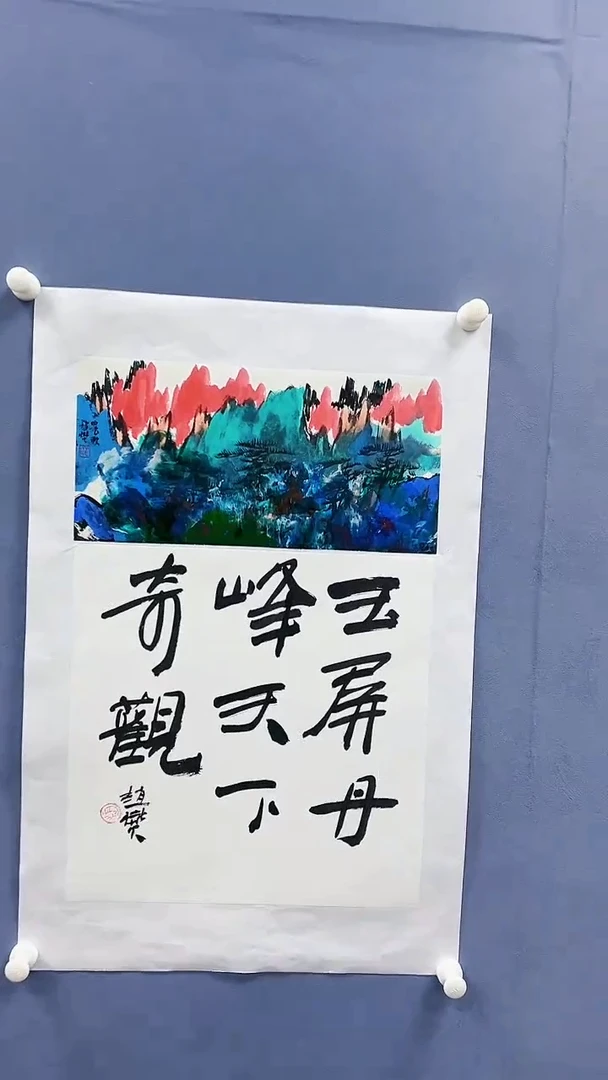 玉屏丹
峰天下
奇觀